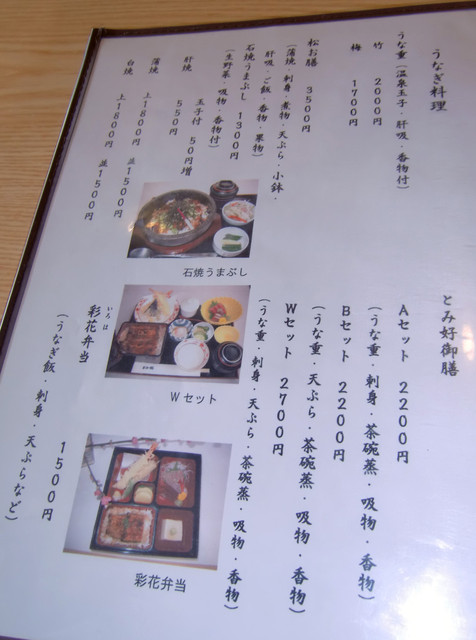 うなぎ料理
うな重(温泉玉子・肝吸・香物付)
竹 2000円
梅 1700円
松お膳 3500円
(蒲焼・刺身・煮物・天ぷら・小鉢・
肝吸・ご飯・香物・果物)
石焼うまぶし 1300円
(生野菜・吸物・香物付)
玉子付 50円増
肝焼 550円
蒲焼 上1800円 並1500円
白焼 上1800円 並1500円
石焼うまぶし
とみ好御膳
Aセット 2200円
(うな重・刺身・茶碗蒸・吸物・香物)
Bセット 2200円
(うな重・天ぷら・茶碗蒸・吸物・香物)
Wセット 2700円
(うな重・刺身・天ぷら・茶碗蒸・吸物・香物)
Wセット
いろは
彩花弁当 1500円
(うなぎ飯・刺身・天ぷらなど)
彩花弁当